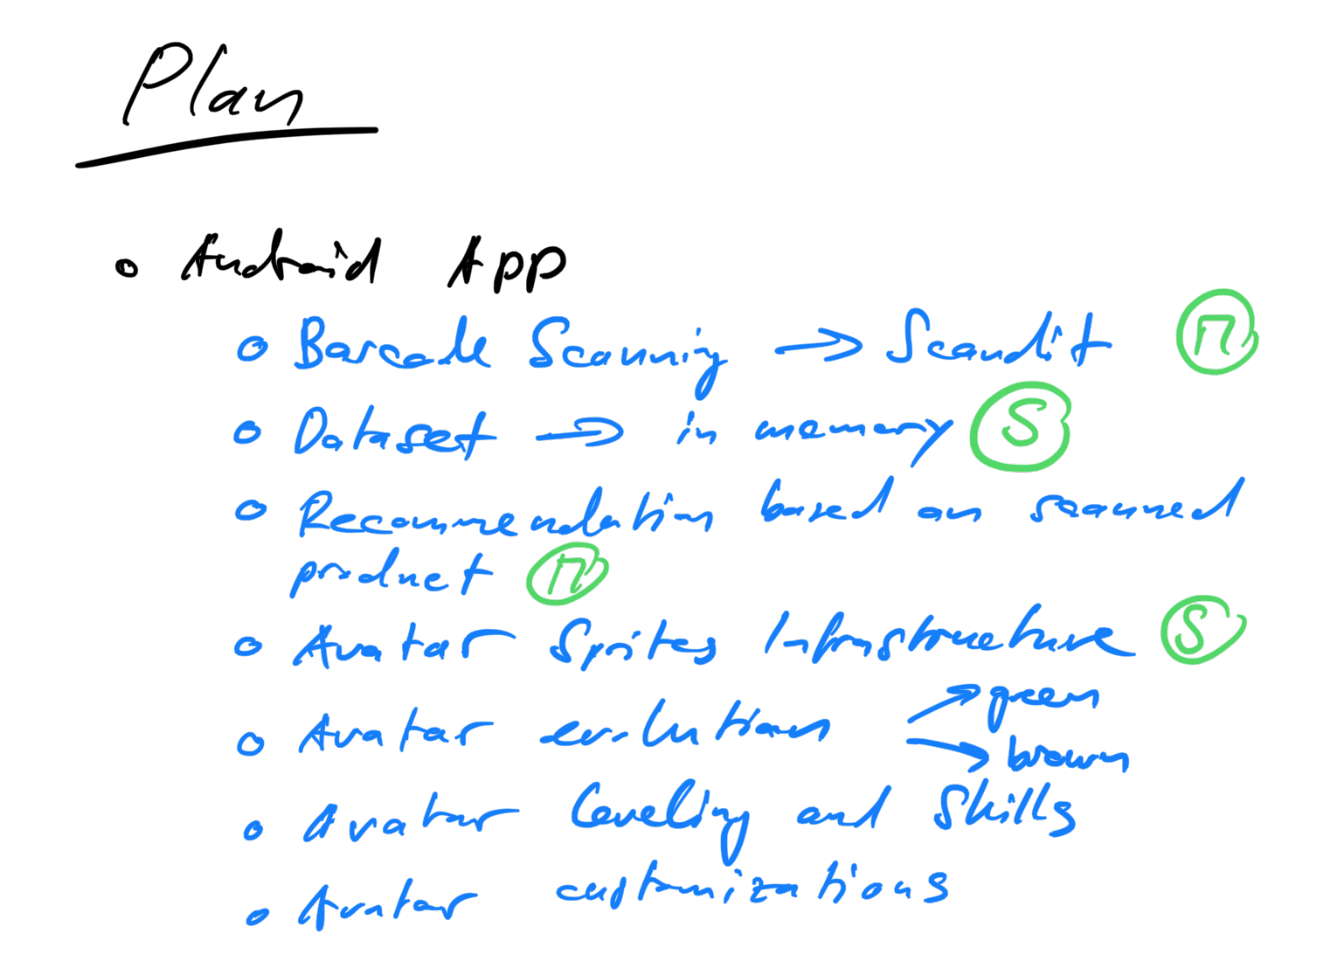 Plan
Android App
Barcode Scanning → Scandit M
Dataset → in memory S
Recommendation based on scanned
product M
Avatar Sprites Infrastructure S
Avatar evolution → green
→ brown
Avatar Leveling and Skills
Avatar customizations